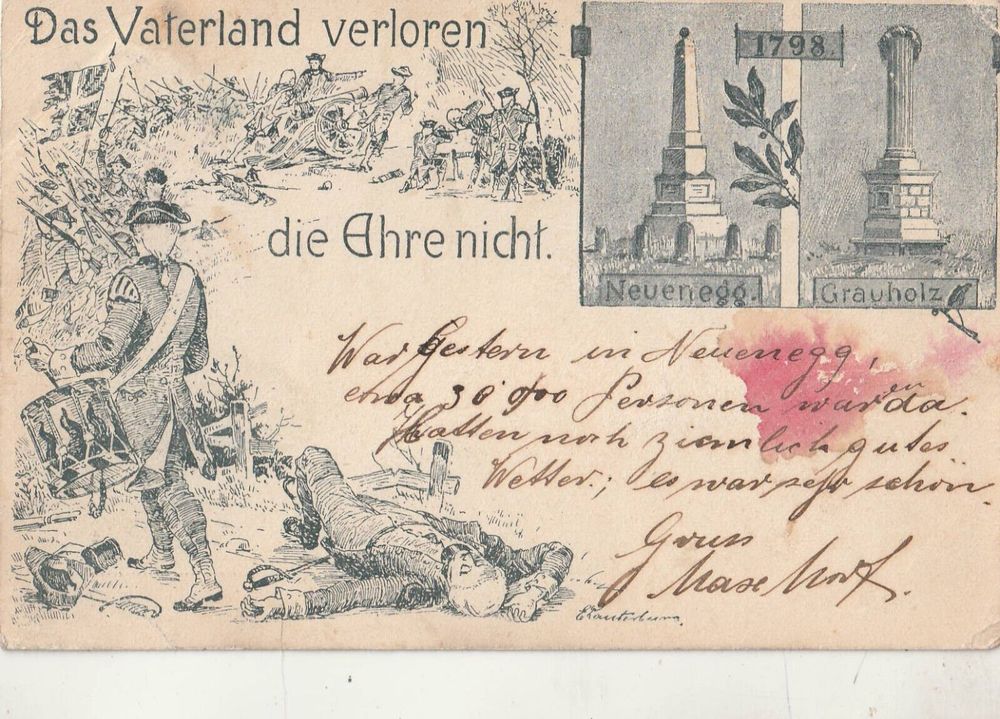 Das Vaterland verloren
die Ehre nicht.
1798.
Neuenegg.
Grauholz
War Gestern in Neuenegg,
etwa 30 000 Personen war da.
en
Hatten noch ziemlich gutes
Wetter.; es war sehr schön.
Gruss
Max